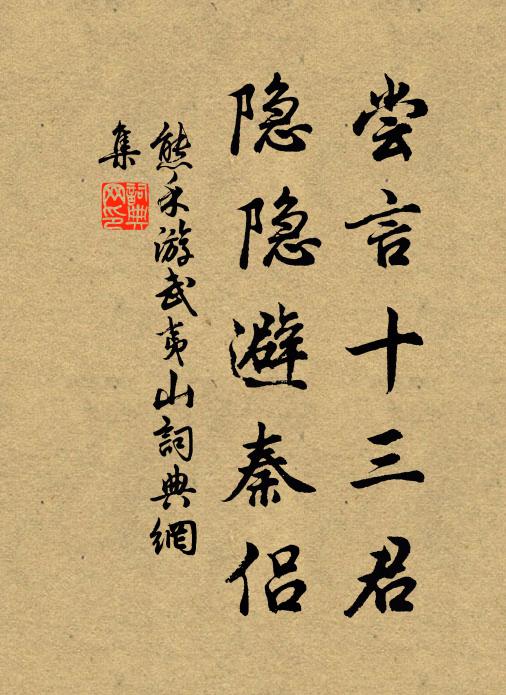 尝言十三君
隐隐避秦侣
熊禾游武夷山詞典網
集
詞典
网印